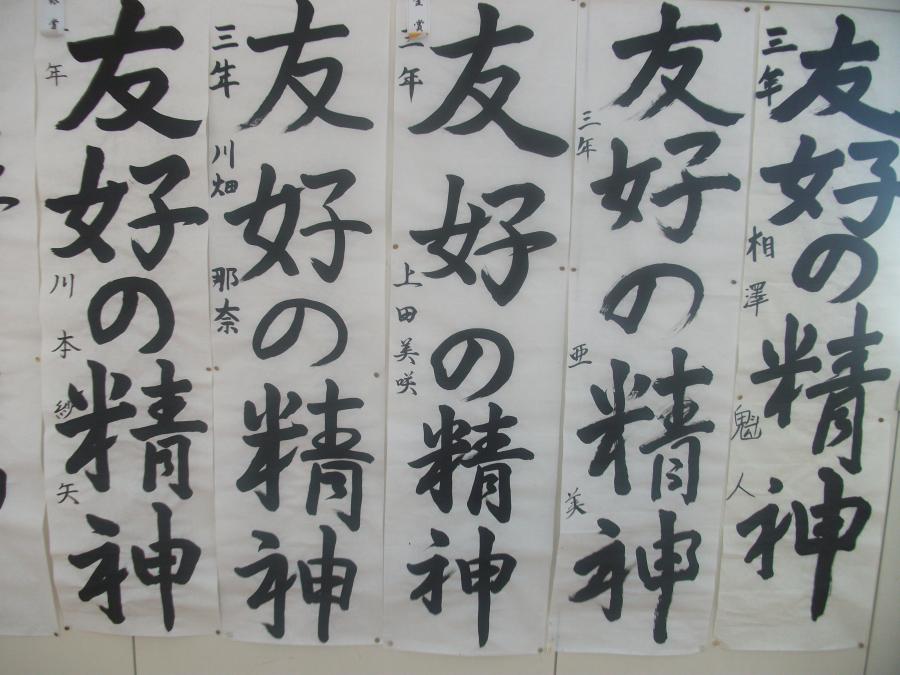 友好の精神
三年 相澤 魁人
友好の精神
三年 亜美
友好の精神
三年 上田美咲
友好の精神
三年 川畑 那奈
友好の精神
年 川本 紗矢